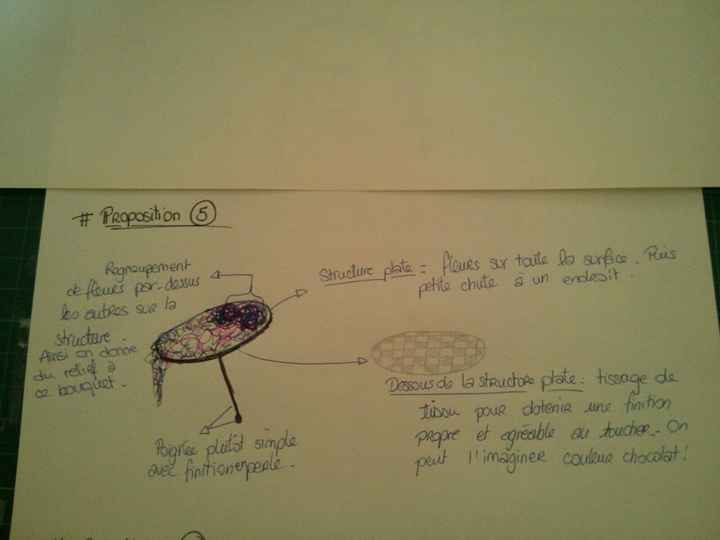 # Proposition 5
Regroupement
de fleurs par-dessus
les autres sur la
structure.
Ainsi on donne
du relief à
ce bouquet.
Structure plate = fleurs sur toute la surface. Puis
petite chute à un endroit.
Dessous de la structure plate : tissage de
tissu pour obtenir une finition
propre et agréable au toucher. On
peut l'imaginer couleur chocolat !
Poignée plutôt simple
avec finition perle.